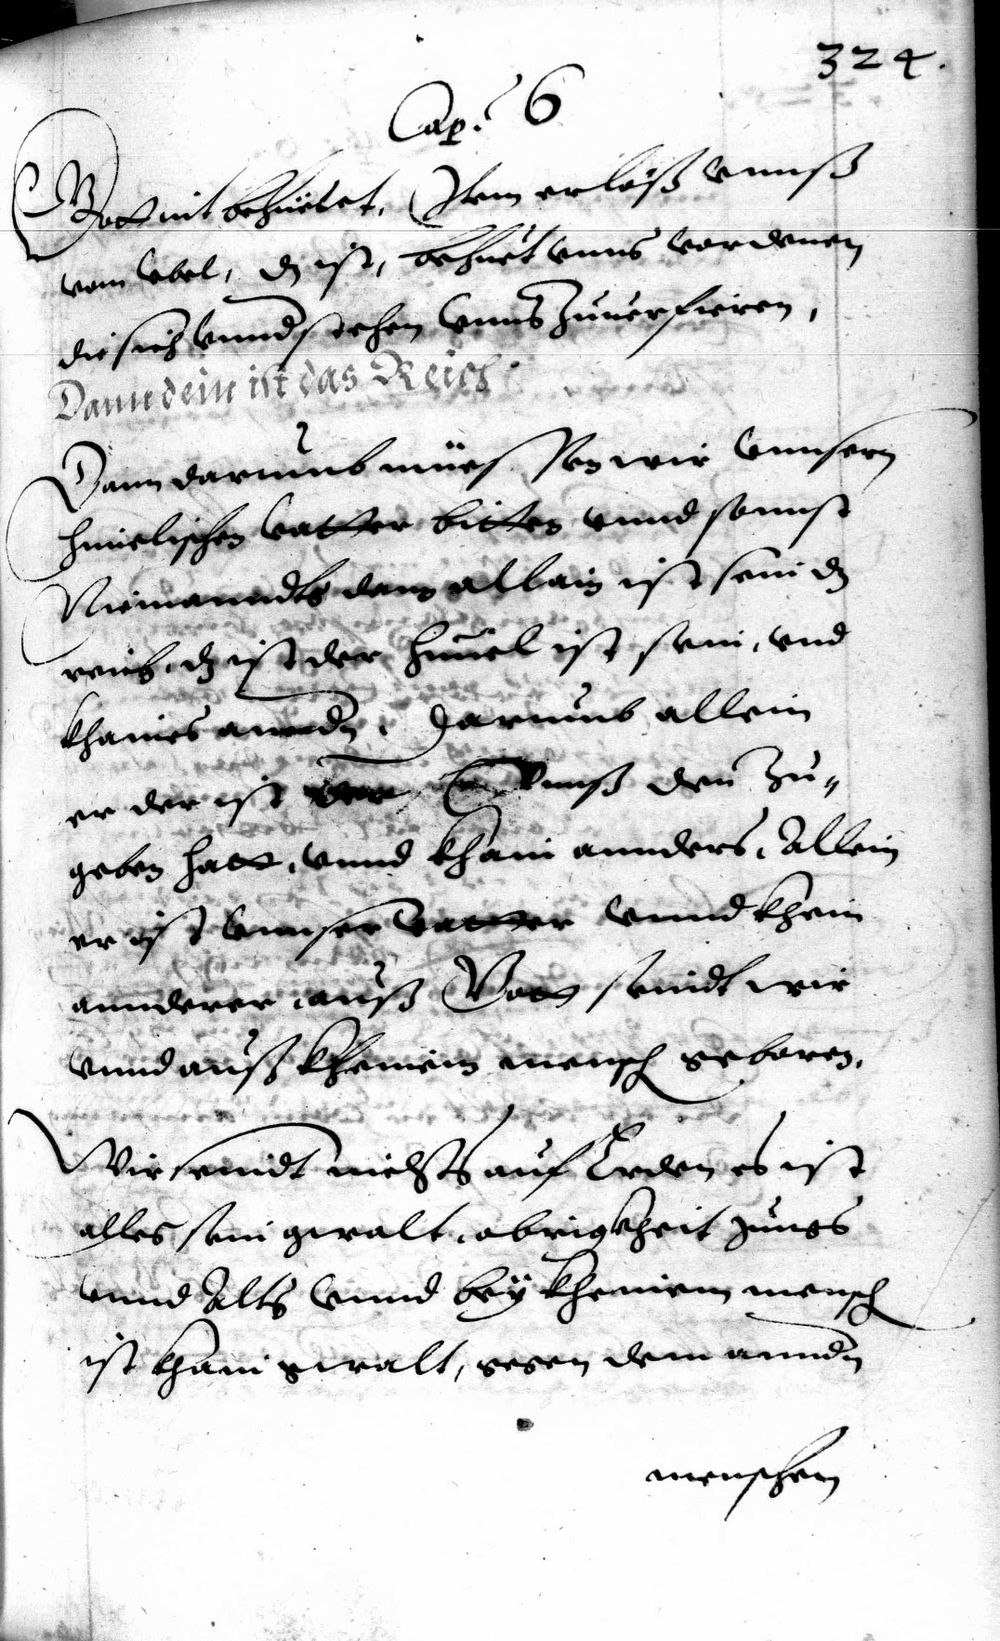 324.
Cap. 6
Gott nit behüetet, Item erlöß vnnß
vom vbel, dz ist, behüet vnns vor denen
die sich vnnderstehen vnns zuuerfieren,
Dann dein ist das Reich
Dann darumb müessen wir vnnsern
himelischen vatter bitten vnnd sonnst
Niemanndts dann allain ist sein dz
reich, dz ist der himel ist sein, vnd
khaines anndn, darumb allein
er der ist vnnß den zu-
geben hatt, vnnd khain annders, Allein
er ist vnnser vatter vnnd khein
annderer, auß Gott seindt wir
vnnd auß kheinem mensch geboren,
Wir seindt nichts auf Erden es ist
alles sein gwalt, obrigkheit Jungs
vnnd Alts vnnd bey kheinem mensch
ist khain gwalt, gegen dem anndn
menschen